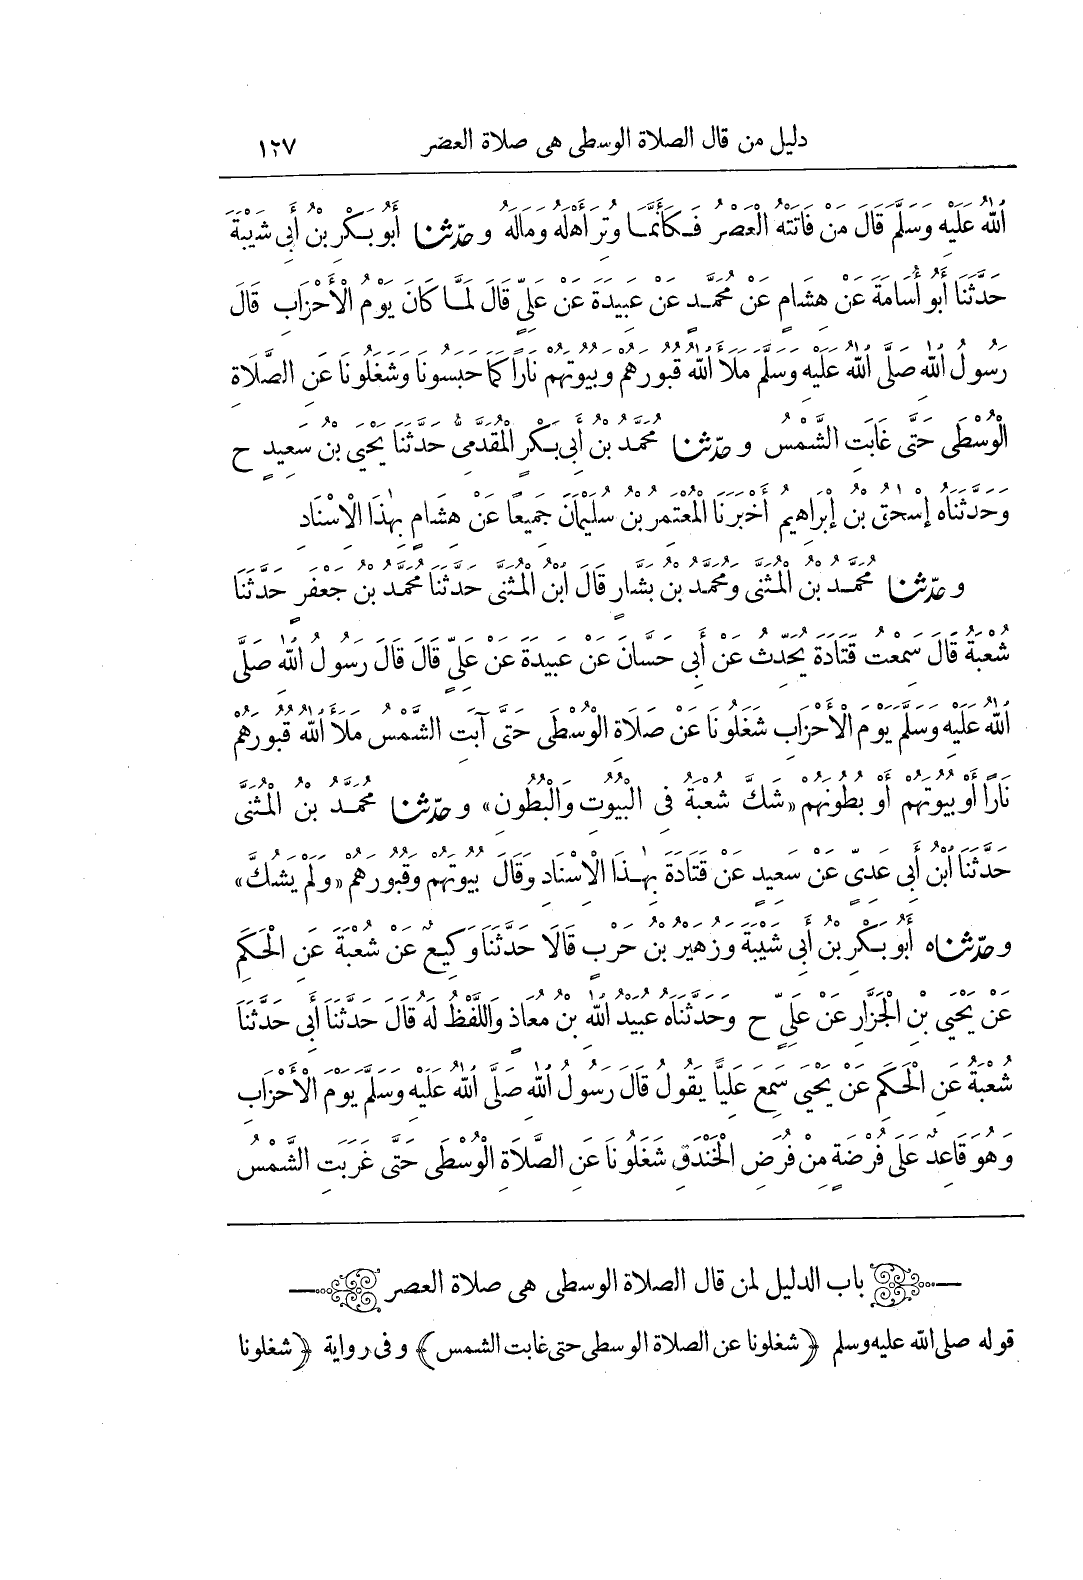 دليل من قال الصلاة الوسطى هى صلاة العصر ١٢٧
اللهُ عَلَيْهِ وَسَلَّمَ قَالَ مَنْ فَاتَتْهُ الْعَصْرُ فَكَأَنَّمَا وُتِرَ أَهْلَهُ وَمَالَهُ وحدثنا أَبُو بَكْرِ بْنُ أَبِي شَيْبَةَ
حَدَّثَنَا أَبُو أُسَامَةَ عَنْ هِشَامٍ عَنْ مُحَمَّدٍ عَنْ عَبِيدَةَ عَنْ عَلِيٍّ قَالَ لَمَّا كَانَ يَوْمُ الْأَحْزَابِ قَالَ
رَسُولُ اللهِ صَلَّى اللهُ عَلَيْهِ وَسَلَّمَ مَلَأَ اللهُ قُبُورَهُمْ وَبُيُوتَهُمْ نَارًا كَمَا حَبَسُونَا وَشَغَلُونَا عَنِ الصَّلَاةِ
الْوُسْطَى حَتَّى غَابَتِ الشَّمْسُ وحدثنا مُحَمَّدُ بْنُ أَبِي بَكْرٍ الْمُقَدَّمِيُّ حَدَّثَنَا يَحْيَى بْنُ سَعِيدٍ ح
وَحَدَّثَنَاهُ إِسْحٰقُ بْنُ إِبْرَاهِيمَ أَخْبَرَنَا الْمُعْتَمِرُ بْنُ سُلَيْمَانَ جَمِيعًا عَنْ هِشَامٍ بِهٰذَا الْإِسْنَادِ
وحدثنا مُحَمَّدُ بْنُ الْمُثَنَّى وَمُحَمَّدُ بْنُ بَشَّارٍ قَالَ ابْنُ الْمُثَنَّى حَدَّثَنَا مُحَمَّدُ بْنُ جَعْفَرٍ حَدَّثَنَا
شُعْبَةُ قَالَ سَمِعْتُ قَتَادَةَ يُحَدِّثُ عَنْ أَبِي حَسَّانَ عَنْ عَبِيدَةَ عَنْ عَلِيٍّ قَالَ قَالَ رَسُولُ اللهِ صَلَّى
اللهُ عَلَيْهِ وَسَلَّمَ يَوْمَ الْأَحْزَابِ شَغَلُونَا عَنْ صَلَاةِ الْوُسْطَى حَتَّى آبَتِ الشَّمْسُ مَلَأَ اللهُ قُبُورَهُمْ
نَارًا أَوْ بُيُوتَهُمْ أَوْ بُطُونَهُمْ «شَكَّ شُعْبَةُ فِي الْبُيُوتِ وَالْبُطُونِ» وحدثنا مُحَمَّدُ بْنُ الْمُثَنَّى
حَدَّثَنَا ابْنُ أَبِي عَدِيٍّ عَنْ سَعِيدٍ عَنْ قَتَادَةَ بِهٰذَا الْإِسْنَادِ وَقَالَ بُيُوتَهُمْ وَقُبُورَهُمْ «وَلَمْ يَشُكَّ»
وحدثناه أَبُو بَكْرِ بْنُ أَبِي شَيْبَةَ وَزُهَيْرُ بْنُ حَرْبٍ قَالَا حَدَّثَنَا وَكِيعٌ عَنْ شُعْبَةَ عَنِ الْحَكَمِ
عَنْ يَحْيَى بْنِ الْجَزَّارِ عَنْ عَلِيٍّ ح وَحَدَّثَنَاهُ عُبَيْدُ اللهِ بْنُ مُعَاذٍ وَاللَّفْظُ لَهُ قَالَ حَدَّثَنَا أَبِي حَدَّثَنَا
شُعْبَةُ عَنِ الْحَكَمِ عَنْ يَحْيَى سَمِعَ عَلِيًّا يَقُولُ قَالَ رَسُولُ اللهِ صَلَّى اللهُ عَلَيْهِ وَسَلَّمَ يَوْمَ الْأَحْزَابِ
وَهُوَ قَاعِدٌ عَلَى فُرْضَةٍ مِنْ فُرَضِ الْخَنْدَقِ شَغَلُونَا عَنِ الصَّلَاةِ الْوُسْطَى حَتَّى غَرَبَتِ الشَّمْسُ
باب الدليل لمن قال الصلاة الوسطى هى صلاة العصر
قوله صلى الله عليه وسلم ﴿شغلونا عن الصلاة الوسطى حتى غابت الشمس﴾ وفى رواية ﴿شغلونا